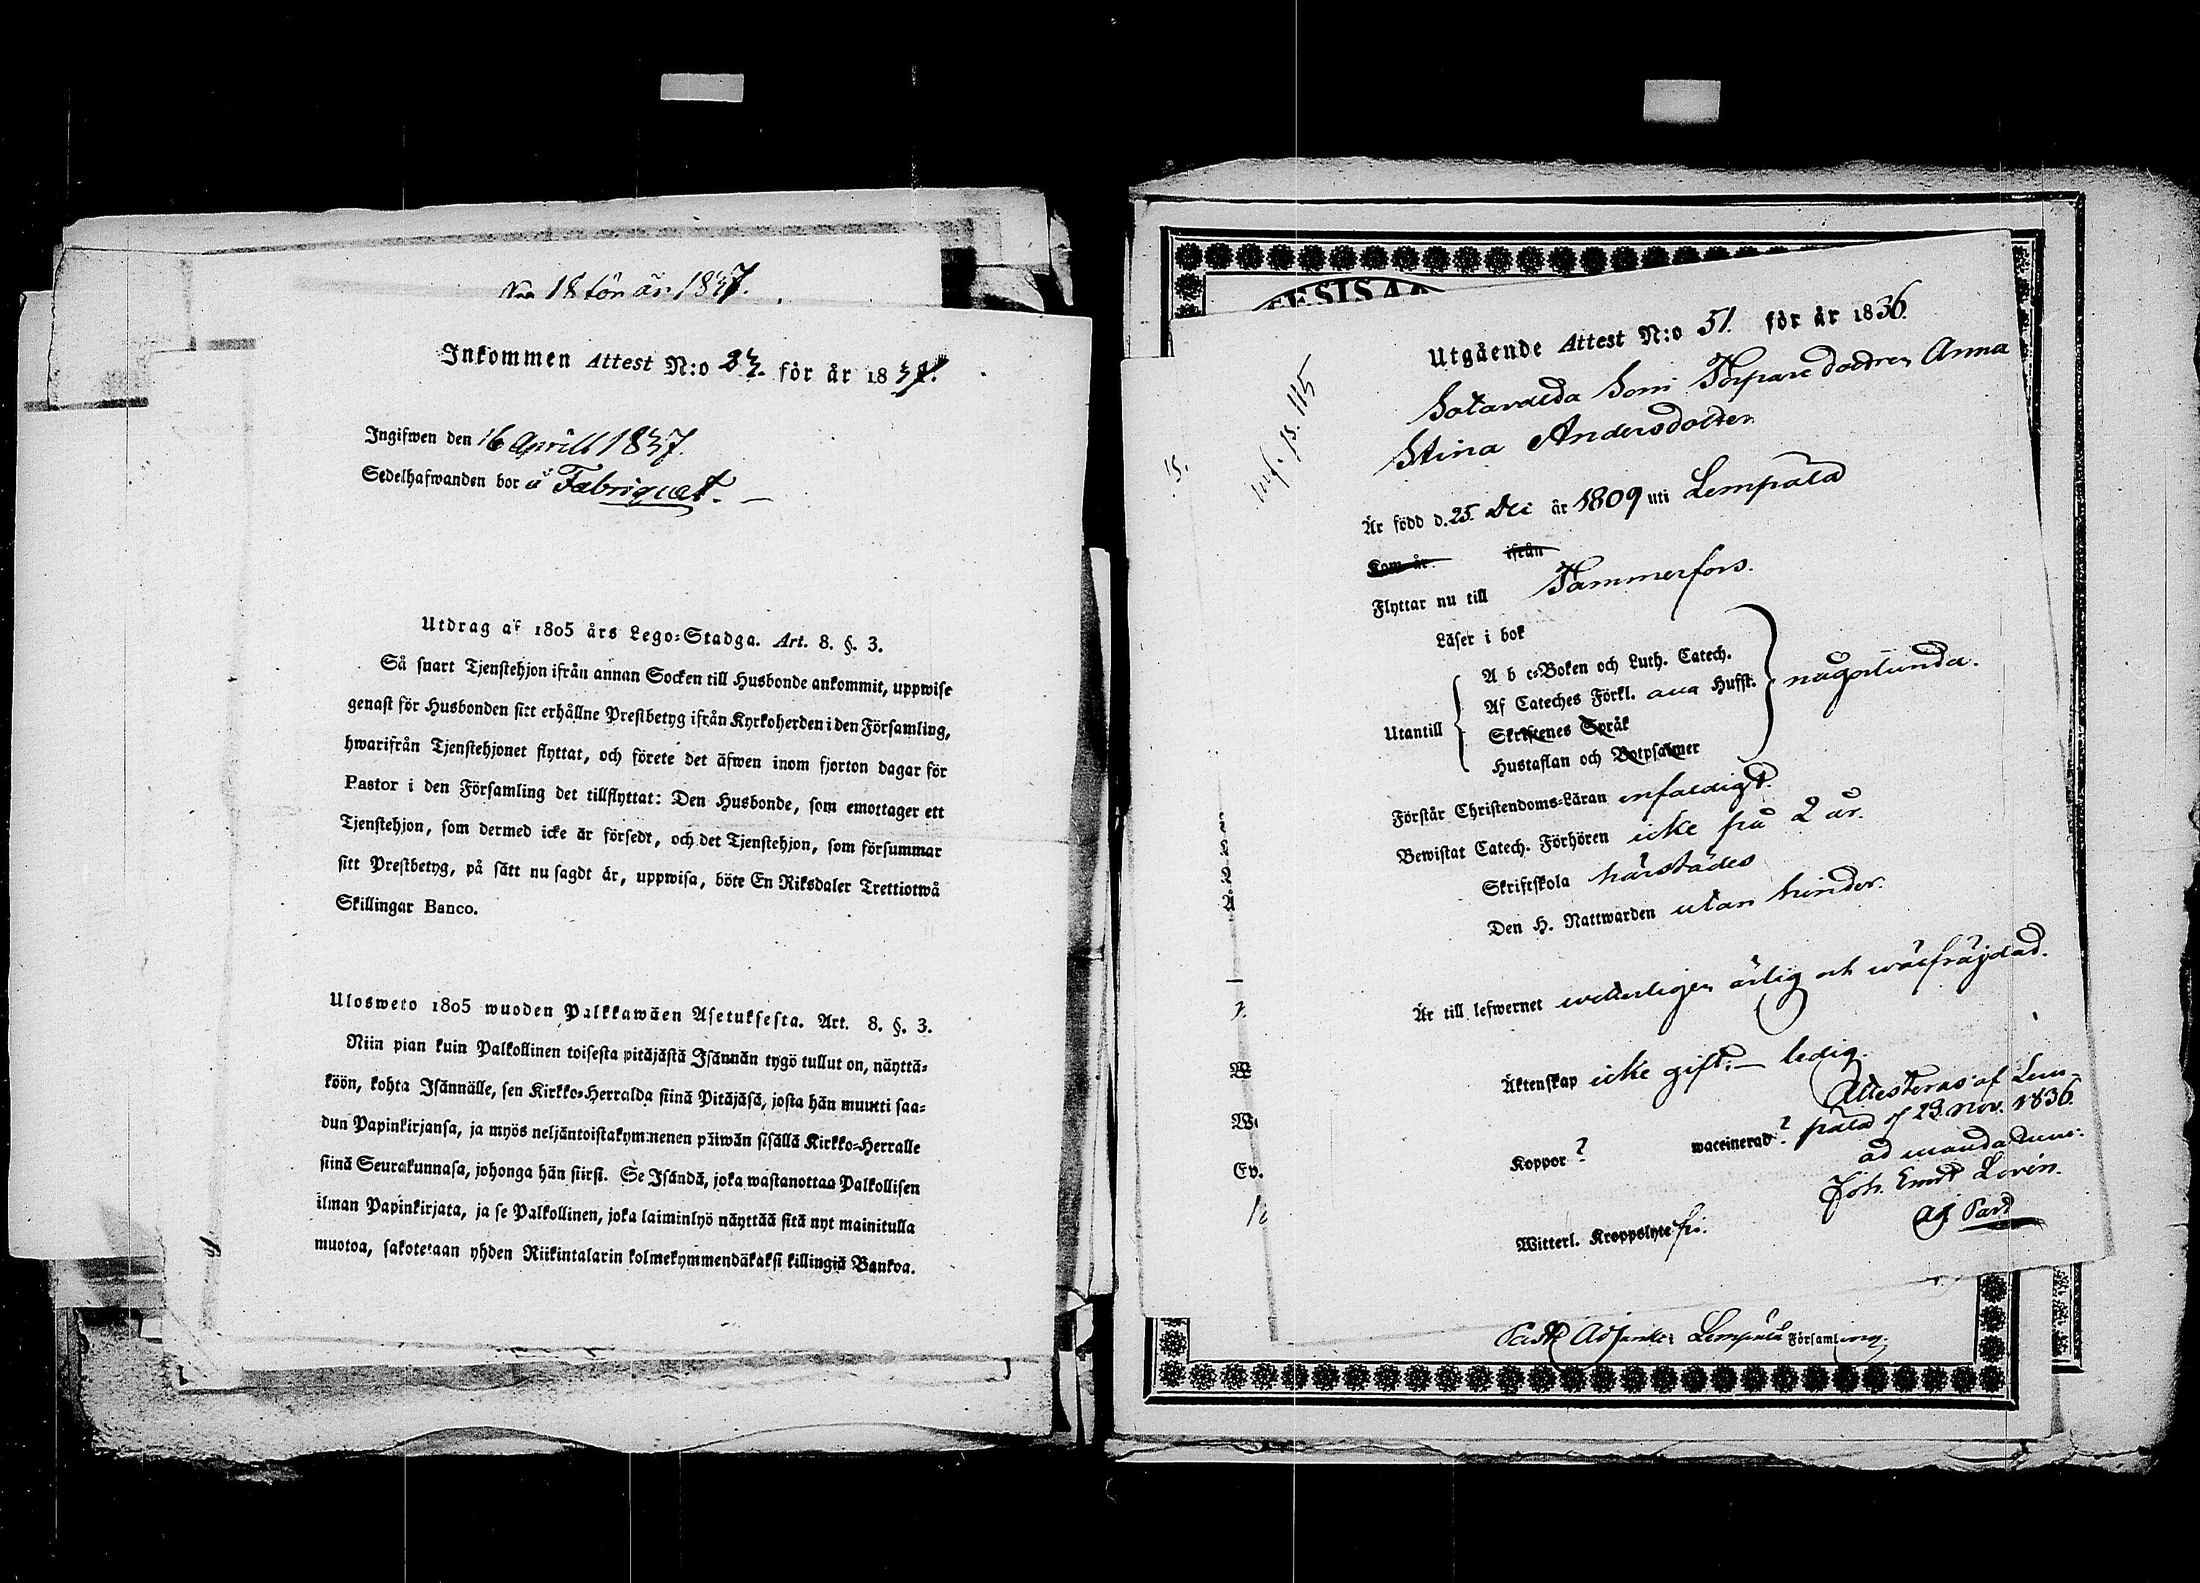 N:o 18 för år 1837.
Inkommen Attest N:o 23. för år 1837.
Ingifwen den 16 Aprill 1837.
Sedelhafwanden bor å Fabriquet.
Utdrag af 1805 års Lego-Stadga. Art. 8. §. 3.
Så snart Tjenstehjon ifrån annan Socken till Husbonde ankommit, uppwise
genast för Husbonden sitt erhållne Prestbetyg ifrån Kyrkoherden i den Församling,
hwarifrån Tjenstehjonet flyttat, och förete det äfwen inom fjorton dagar för
Pastor i den Församling det tillflyttat: Den Husbonde, som emottager ett
Tjenstehjon, som dermed icke är försedt, och det Tjenstehjon, som försummar
sitt Prestbetyg, på sätt nu sagdt är, uppwisa, böte En Riksdaler Trettiotwå
Skillingar Banco.
Ulosweto 1805 wuoden Palkkawäen Asetuksesta. Art. 8. §. 3.
Niin pian kuin Palkollinen toisesta pitäjästä Isännän tygö tullut on, näyttä-
köön, kohta Isännälle, sen Kirkko-Herralda siinä Pitäjäsä, josta hän muutti saa-
dun Papinkirjansa, ja myös neljäntoistakymmenen päiwän sisällä Kirkko-Herralle
siinä Seurakunnasa, johonga hän siirsi. Se Isändä, joka wastanottaa Palkollisen
ilman Papinkirjata, ja se Palkollinen, joka laiminlyö näyttää sitä nyt mainitulla
muotoa, sakotetaan yhden Riikintalarin kolmekymmendäkaksi killingiä Bankoa.
Utgående Attest N:o 51. för år 1836.
Sotavalda Torpare dottren Anna
Stina Andersdotter
inf. p. 115
15.
Är född d. 25. Dec år 1809 uti Lempälä
Kom år ifrån
Flyttar nu till Tammerfors.
Läser i bok
A b c-Boken och Luth. Catech.
Af Cateches Förkl. alla Hufst.
Utantill någorlunda.
Skriftenes Språk
Hustaflan och Botpsalmer
Förstår Christendoms-Läran enfaldigt.
Bewistat Catech. Förhören icke på 2 år.
Skriftskola härstädes
Den H. Nattwarden utan hinder.
Är till lefwernet witterligen ärlig och wälfräjdad.
Äktenskap icke gift. — ledig.
Attesteras af Lem-
Koppor ? waccinerad ? pälä d 23. Nov. 1836.
ad mandatum:
Joh. Emt Lorén.
Adj Past
Witterl. Kroppslyte fri.
Past Adjunkt i Lempälä Församling.